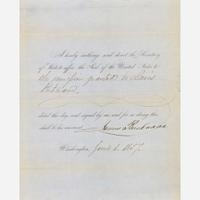 I hereby authorize and direct the Secretary
of State to affix the Seal of the United States to
the pardon granted to
dated this day and signed by me and for so doing this
shall be his warrant. James Buchanan
Washington, June 6. 1857.